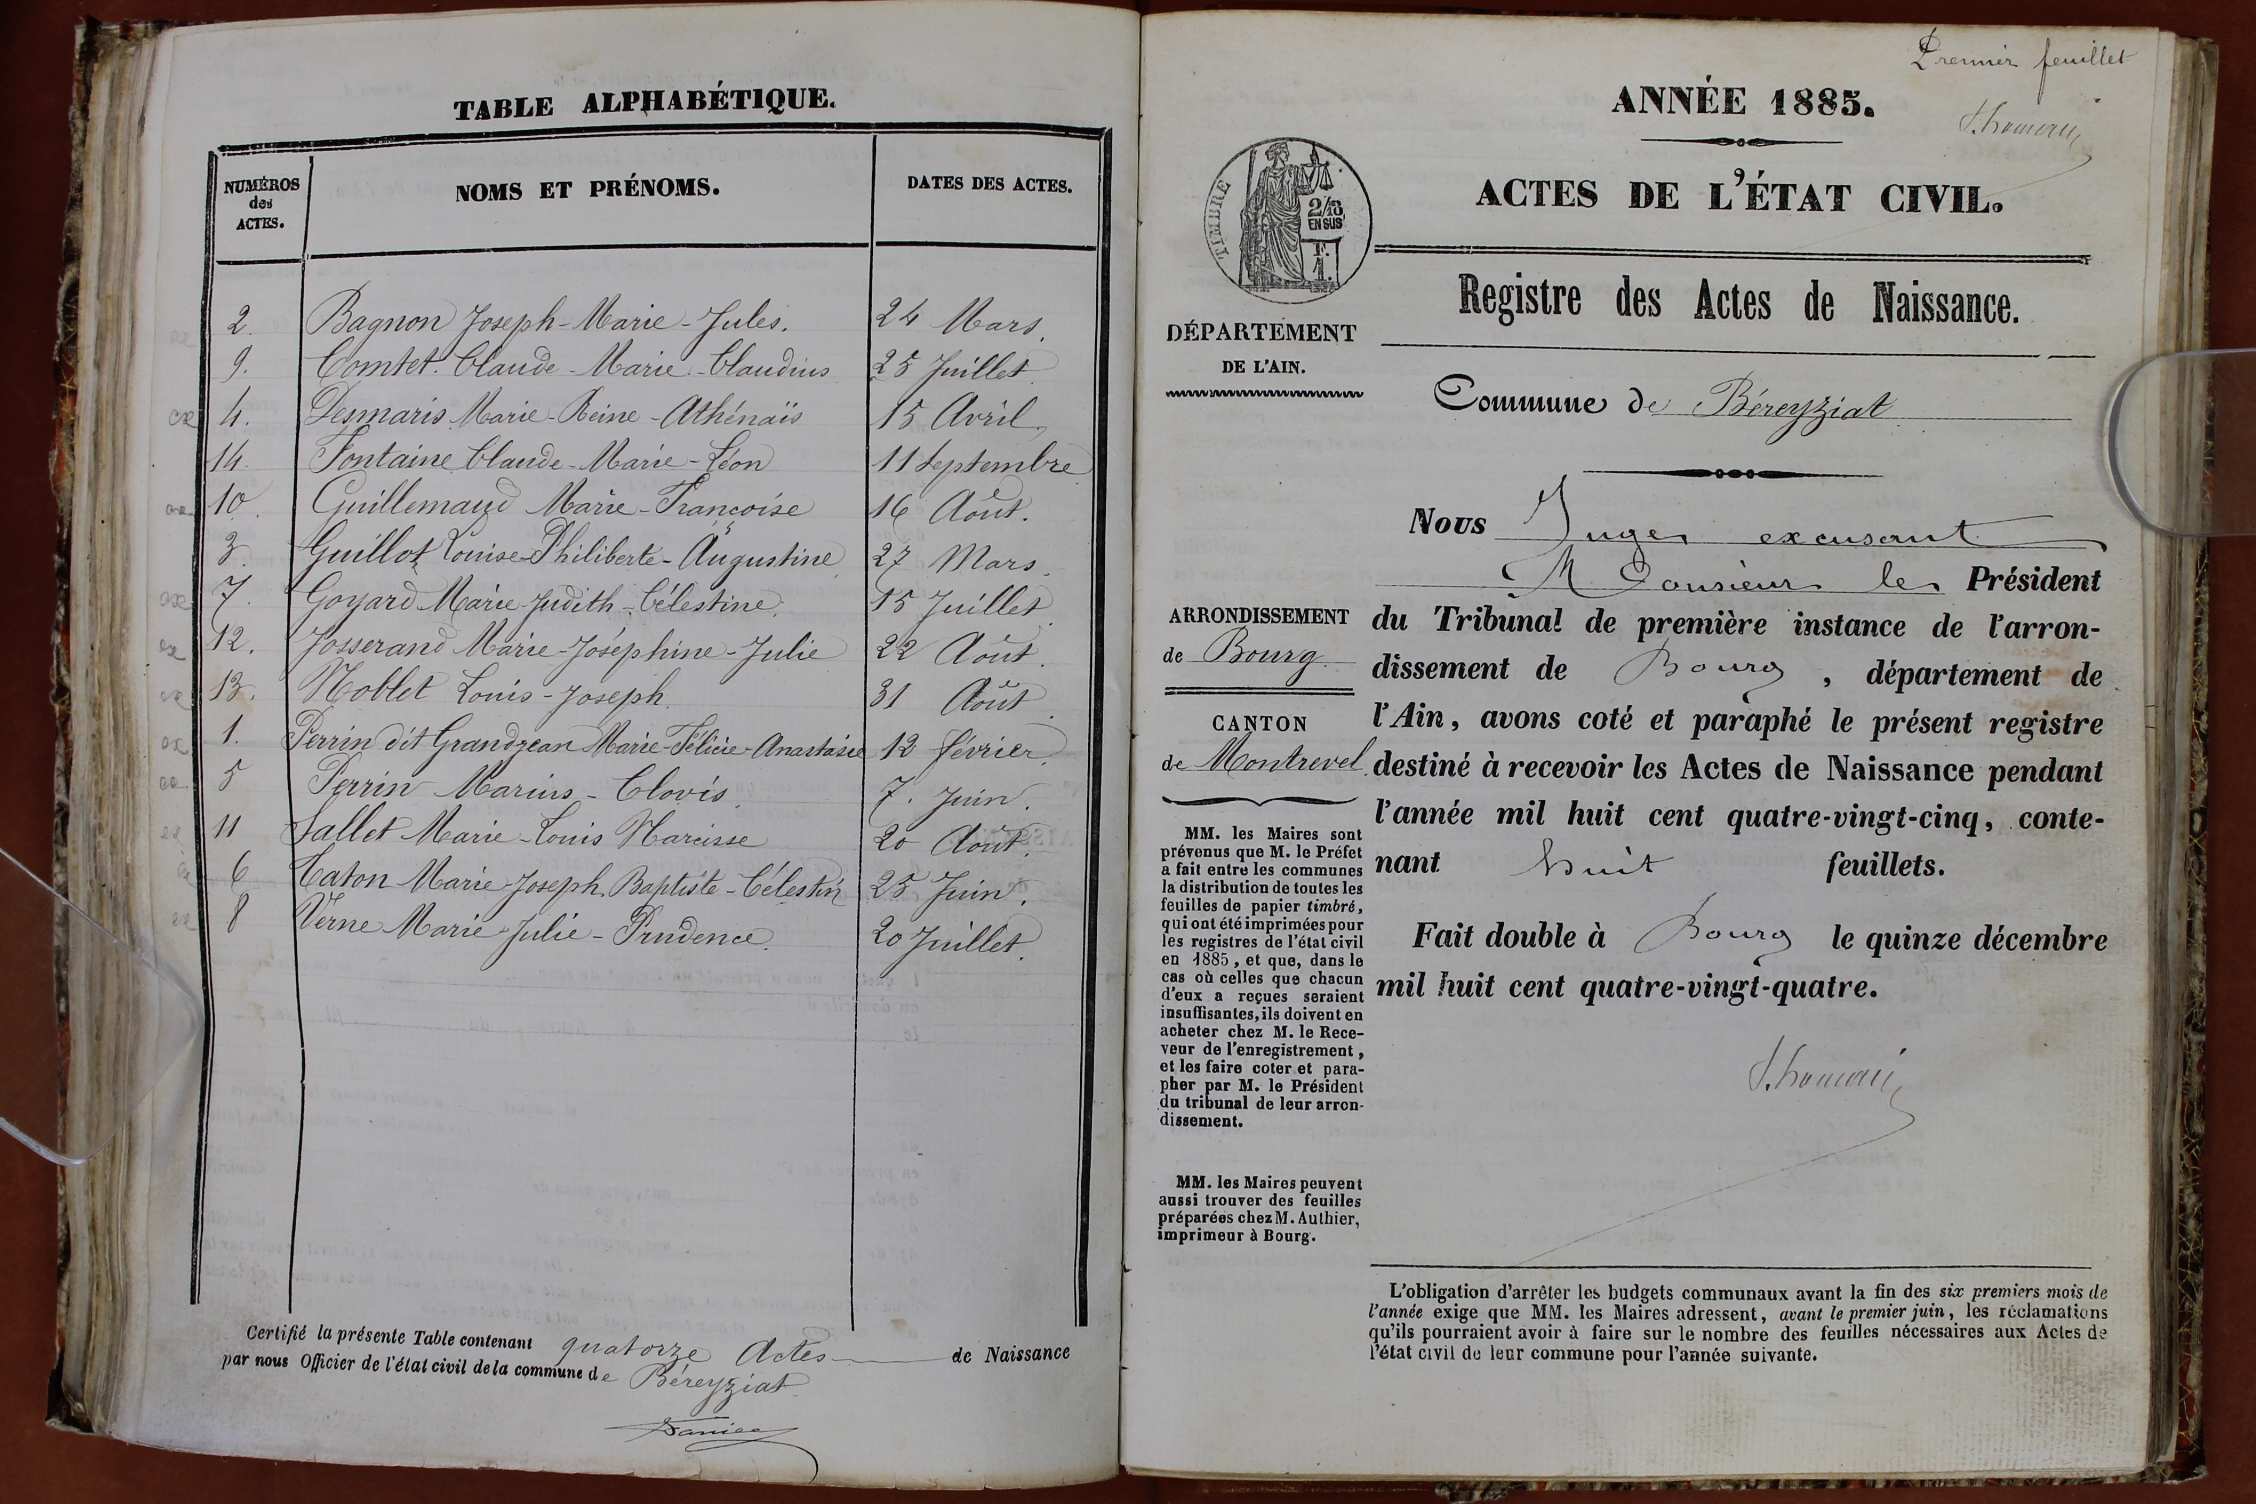 TABLE ALPHABÉTIQUE.
NUMÉROS des ACTES. NOMS ET PRÉNOMS. DATES DES ACTES.
2. Bagnon Joseph-Marie-Jules. 24 Mars.
9. Comtet Claude-Marie-Claudius 25 Juillet
4. Desmaris Marie-Reine-Athénaïs 15 Avril
14. Fontaine Claude-Marie-Léon 11 Septembre
10. Guillemaud Marie-Françoise 16 Août.
3. Guillot Louise-Philiberte-Augustine 27 Mars.
7. Goyard Marie-Judith-Célestine. 15 Juillet
12. Josserand Marie-Joséphine-Julie 22 Août.
13. Noblet Louis-Joseph. 31 Août.
1. Perrin dit Grandjean Marie-Félicie-Anastasie 12 février.
5 Perrin Marius-Clovis. 7. Juin.
11 Sallet Marie-Louis Narcisse 20 Août.
6 Taton Marie-Joseph Baptiste-Célestin 25 Juin.
8 Verne Marie Julie-Prudence. 20 Juillet.
Certifié la présente Table contenant quatorze Actes de Naissance
par nous Officier de l'état civil de la commune de Béreyziat
Premier feuillet
ANNÉE 1885.
ACTES DE L'ÉTAT CIVIL.
TIMBRE
2/10
EN SUS
F.
1.
Registre des Actes de Naissance.
DÉPARTEMENT
DE L'AIN.
Commune de Béreyziat
Nous Juge excusant
Monsieur le Président
du Tribunal de première instance de l'arron-
dissement de Bourg, département de
l'Ain, avons coté et paraphé le présent registre
destiné à recevoir les Actes de Naissance pendant
l'année mil huit cent quatre-vingt-cinq, conte-
nant huit feuillets.
Fait double à Bourg le quinze décembre
mil huit cent quatre-vingt-quatre.
ARRONDISSEMENT
de Bourg
CANTON
de Montrevel
MM. les Maires sont
prévenus que M. le Préfet
a fait entre les communes
la distribution de toutes les
feuilles de papier timbré,
qui ont été imprimées pour
les registres de l'état civil
en 1885, et que, dans le
cas où celles que chacun
d'eux a reçues seraient
insuffisantes, ils doivent en
acheter chez M. le Rece-
veur de l'enregistrement,
et les faire coter et para-
pher par M. le Président
du tribunal de leur arron-
dissement.
MM. les Maires peuvent
aussi trouver des feuilles
préparées chez M. Authier,
imprimeur à Bourg.
L'obligation d'arrêter les budgets communaux avant la fin des six premiers mois de
l'année exige que MM. les Maires adressent, avant le premier juin, les réclamations
qu'ils pourraient avoir à faire sur le nombre des feuilles nécessaires aux Actes de
l'état civil de leur commune pour l'année suivante.